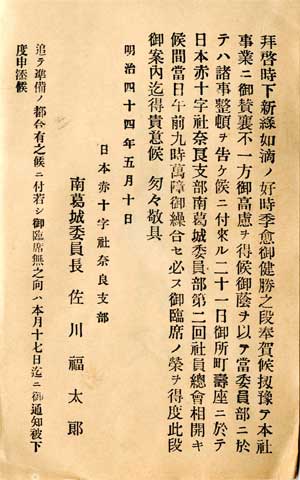 拜啓時下新綠如滴ノ好時季愈御健勝之段奉賀候扨豫テ本社
事業ニ御賛襄不一方御高慮ヲ得候御蔭ヲ以テ當委員部ニ於
テハ諸事整頓ヲ告ケ候ニ付來ル二十一日御所町壽座ニ於テ
日本赤十字社奈良支部南葛城委員部第二回社員總會相開キ
候間當日午前九時萬障御繰合セ必ス御臨席ノ榮ヲ得度此段
御案內迄得貴意候　匆々敬具
明治四十四年五月十日
日本赤十字社奈良支部
南葛城委員長　佐川福太郞
追テ準備ノ都合有之候ニ付若シ御臨席無之向ハ本月十七日迄ニ御通知被下
度申添候